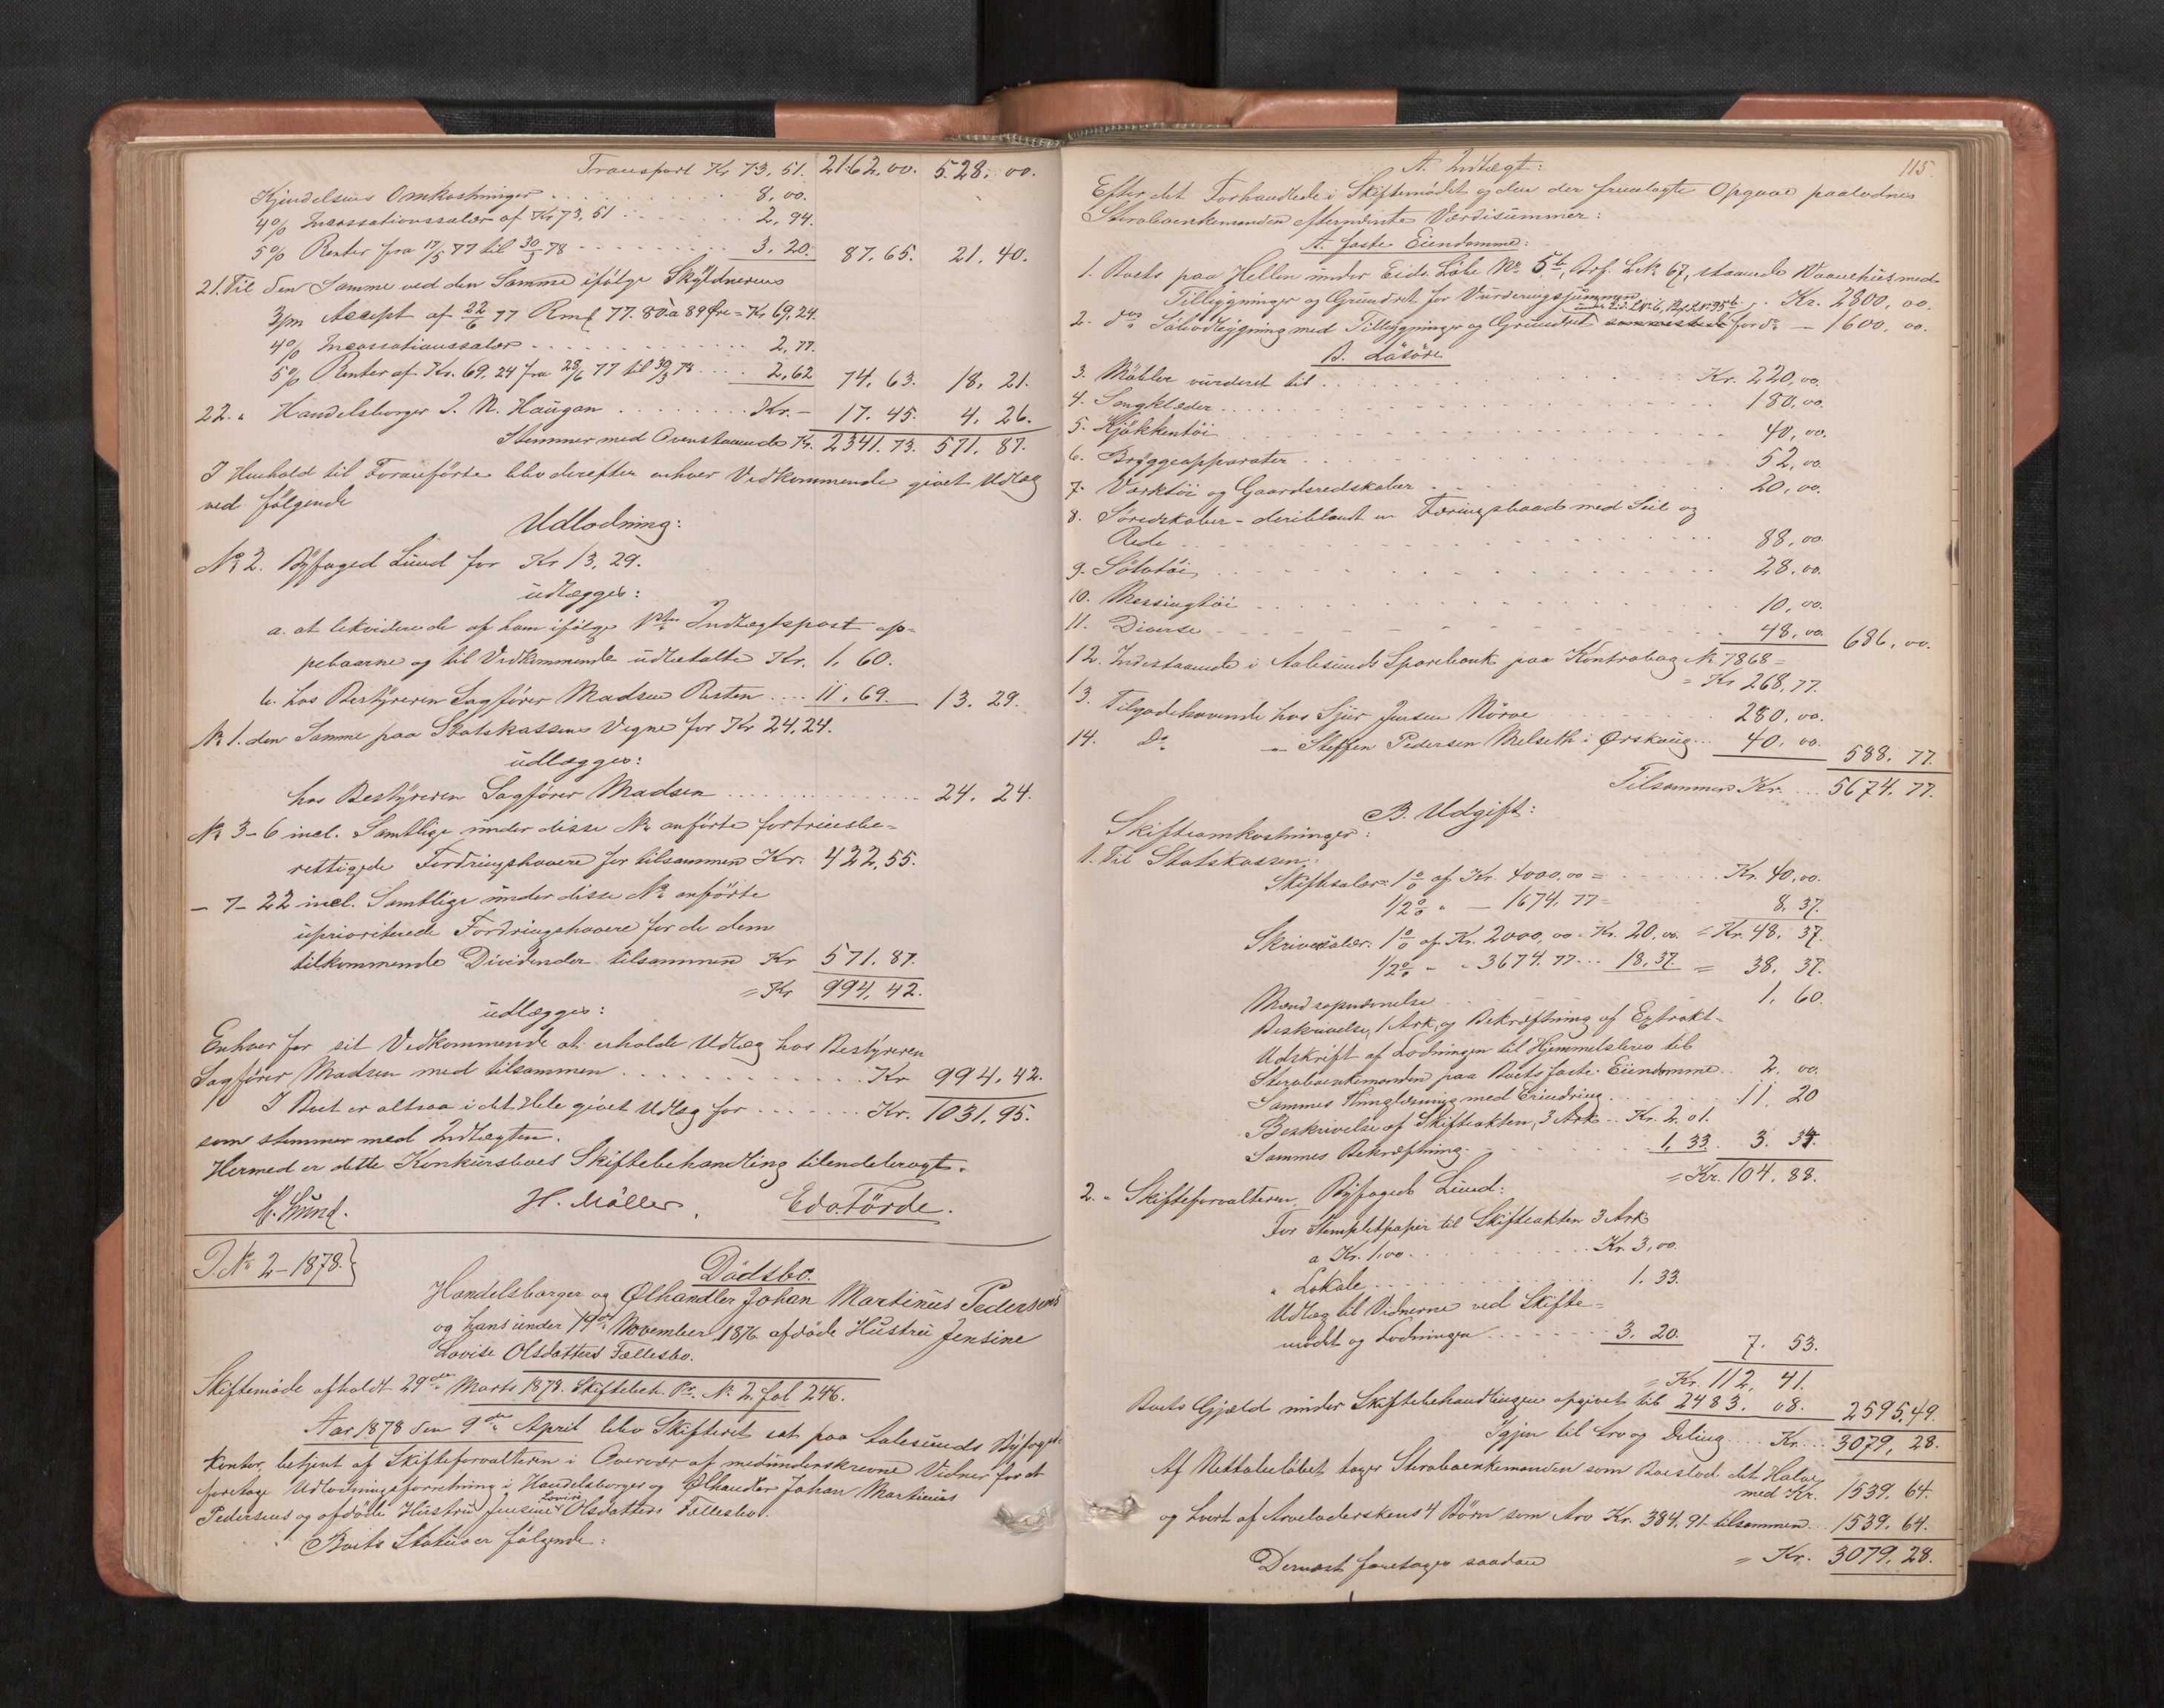 Transport Kr 73,51. 2162.00. 528.00.
Kjendelsens Omkostninger . . . 8,00.
4% Incassationssalær af Kr 73,51 . . . 2,94.
5% Renter fra 17/5 77 til 30/3 78 . . . 3,20. 87.65. 21.40.
21. Til den Samme ved den Samme ifølge Skyldnerens
3/m Accept af 22/6 77 Rmk 77.80 à 89 Øre = Kr 69,24.
4% Incassationssalær . . . 2,77.
5% Renter af Kr. 69,24 fra 28/6 77 til 30/3 78 . . . 2,62 74.63. 18.21.
22. " Handelsborger J. N. Haugan . . . Kr. - 17.45. 4.26.
Stemmer med Ovenstaaende Kr. 2341.73. 571.87.
I Henhold til Foranførte blev derefter enhver Vedkommende givet Udlæg
ved følgende
Udlodning:
No 2. Byfoged Lund for Kr 13,29.
udlægges:
a. at likvidere de af ham ifølge 1ste Indtægtspost op-
pebaarne og til Vedkommende udbetalte Kr. 1,60.
b. hos Bestyreren Sagfører Madsen Resten . . . 11,69. 13.29.
No 1. den Samme paa Statskassens Vegne for Kr 24,24.
udlægges:
hos Bestyreren Sagfører Madsen . . . 24.24.
No 3-6 incl. Samtlige under disse No anførte fortrinsbe-
rettigede Fordringshavere for tilsammen Kr. 422,55.
— 7-22 incl. Samtlige under disse No anførte
uprioriterede Fordringshavere for de dem
tilkommende Dividender tilsammen Kr 571.87.
= Kr 994,42.
udlægges:
Enhver for sit Vedkommende at erholde Udlæg hos Bestyreren
Sagfører Madsen med tilsammen . . . Kr 994,42.
I Boet er altsaa i det Hele givet Udlæg for . . . Kr. 1031,95.
som stemmer med Indtægten.
Hermed er dette Konkursboes Skiftebehandling tilendebragt.
H. Lund. H. Møller. Edv. Førde.
J. No 2-1878.
Dødsbo.
Handelsborger og Ølhandler Johan Martinus Pedersens
og hans under 14de November 1876 afdøde Hustru Jensine
Lovise Olsdatters Fællesbo.
Skiftemøde afholdt 29de Marts 1878. Skiftebeh. Pr. No 2, fol 246.
Aar 1878 den 9de April blev Skifteret sat paa Aalesunds Byfoged-
kontor, betjent af Skifteforvalteren i Overvær af medunderskrevne Vidner for at
foretage Udlodningsforretning i Handelsborger og Ølhandler Johan Martinus
Pedersens og afdøde Hustru Jensine Lovise Olsdatters Fællesbo.
Boets Status er følgende:
115.
A. Indtægt:
Efter det Forhandlede i Skiftemødet og den der fremlagte Opgave paalødnes
Stervboenkemanden efternævnte Værdisummer:
A. faste Eiendomme:
1. Boets paa Hellen under Eids Løbe No 5b, Brf. Lit 67, staaende Vaanehus med
Tilbygninger og Grundret for Vurderingssummen . . Kr. 2800,00.
2. dets Søbodbygning med Tilbygninger og Grundret under Eid. L. No 6, Brf. L. No 95b sammesteds for do — 1600,00.
B. Løsøre
3. Møbler vurderet til . . . Kr. 220,00.
4. Sengklæder . . . 180,00.
5. Kjøkkentøi . . . 40,00.
6. Bryggeapparater . . . 52,00.
7. Værktøi og Gaardsredskaber . . . 20,00.
8. Søredskaber - deriblandt en Færingsbaad med Seil og
Rede . . . 88,00.
9. Sølvtøi . . . 28,00.
10. Messingtøi . . . 10,00.
11. Diverse . . . 48,00. 686,00.
12. Indestaaende i Aalesunds Sparebank paa Kontrabog No 7868 =
= Kr 268,77.
13. Tilgodehavende hos Sjur Jensen Nørve . . . 280,00.
14. Do " Steffen Pedersen Melseth i Ørskoug . . . 40,00. 588.77.
Tilsammen Kr. . . 5674.77.
B. Udgift:
Skifteomkostninger:
1. Til Statskassen:
Skiftesalær: 1% af Kr. 4000,00 = . . . Kr. 40,00.
1/2% " — 1674.77 = 8.37.
= Kr. 48,37.
Skriversalær: 1% af Kr. 2000,00 = Kr. 20,00.
1/2% " " 3674.77 . . 18,37. = 38,37.
Mændsopnævnelse . . . 1,60.
Beskrivelse, 1 Ark, og Bekræftning af Extrakt-
Udskrift af Lodningen til Hjemmelsbrev til
Stervboenkemanden paa Boets faste Eiendomme . . 2.00.
Sammes Thinglæsning med Erindring . . . 11.20
Beskrivelse af Skifteakten, 3 Ark . . Kr. 2,01.
Sammes Bekræftning . . . 1,33. 3.34.
= Kr. 104.88.
2. " Skifteforvalteren, Byfoged Lund:
For Stempletpapir til Skifteakten 3 Ark
a Kr. 1,00 . . . Kr. 3,00.
" Lokale . . . 1.33.
Udlæg til Vidnerne ved Skifte-
mødet og Lodningen . . . 3.20. 7.53.
= Kr. 112,41.
Boets Gjæld under Skiftebehandlingen opgivet til 2483.08. 2595,49.
Igjen til Arv og Deling . . . Kr. . . 3079,28.
Af Nettobeløbet tager Stervboenkemanden som Boeslod det Halve
med Kr. 1539.64.
og hvert af Arveladerskens 4 Børn som Arv Kr. 384,91 tilsammen . . 1539.64.
= Kr. 3079,28.
Dernæst foretages saadan